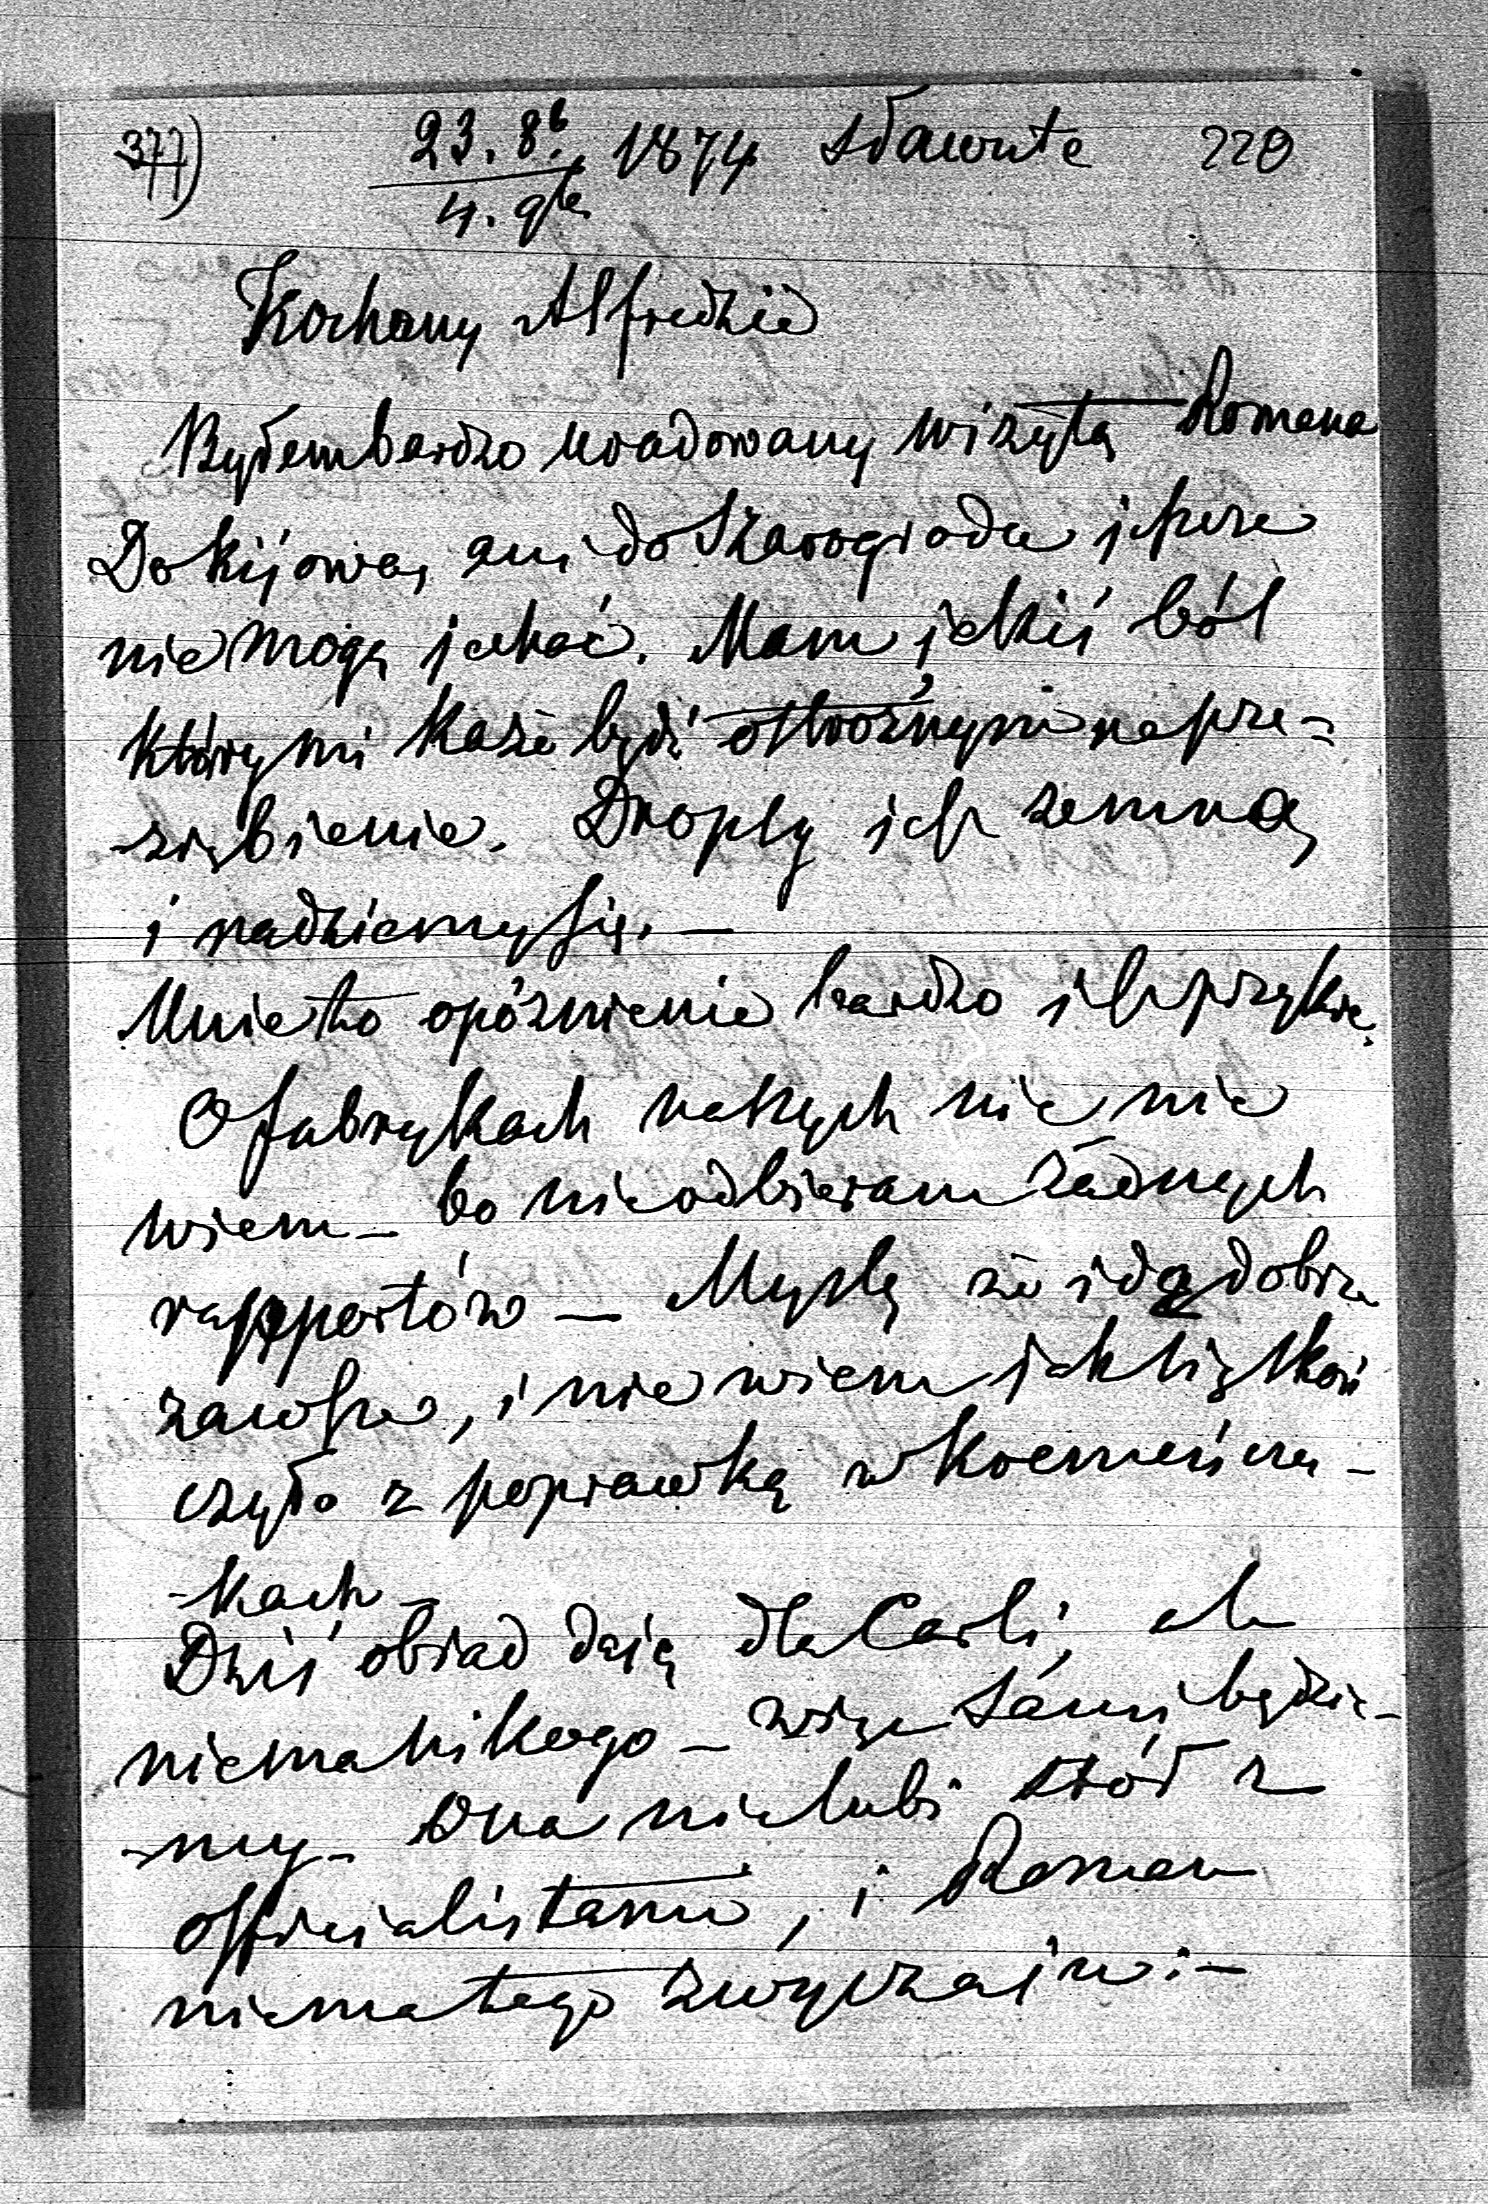 377) 23. 8b. 1874 Sławuta 220
4. 9br
Kochany Alfredzie
Byłem bardzo uradowany wizytą Romana
Do Kijowa, ani do Szarogroda jeszcze
nie mogę jechać. Mam jakiś ból
który mi każe bydź ostrożnym na prze-
-ziębienie. Dropsy jest zemną
i radziemy się. —
Mnie to opóźnienie bardzo jest przykre.
O fabrykach naszych nic nie
wiem — bo nieodbieram żadnych
rapportów — Myślę że idą dobrze
zawsze, i nie wiem jak się skoń
czyło z poprawką w Koemeńczu-
-kach —
Dziś obiad daję dla Carli, ale
niema nikogo — więc sami będzie-
-my — Ona nielubi stół z
officialistami, i Roman
niema tego zwyczaju. —